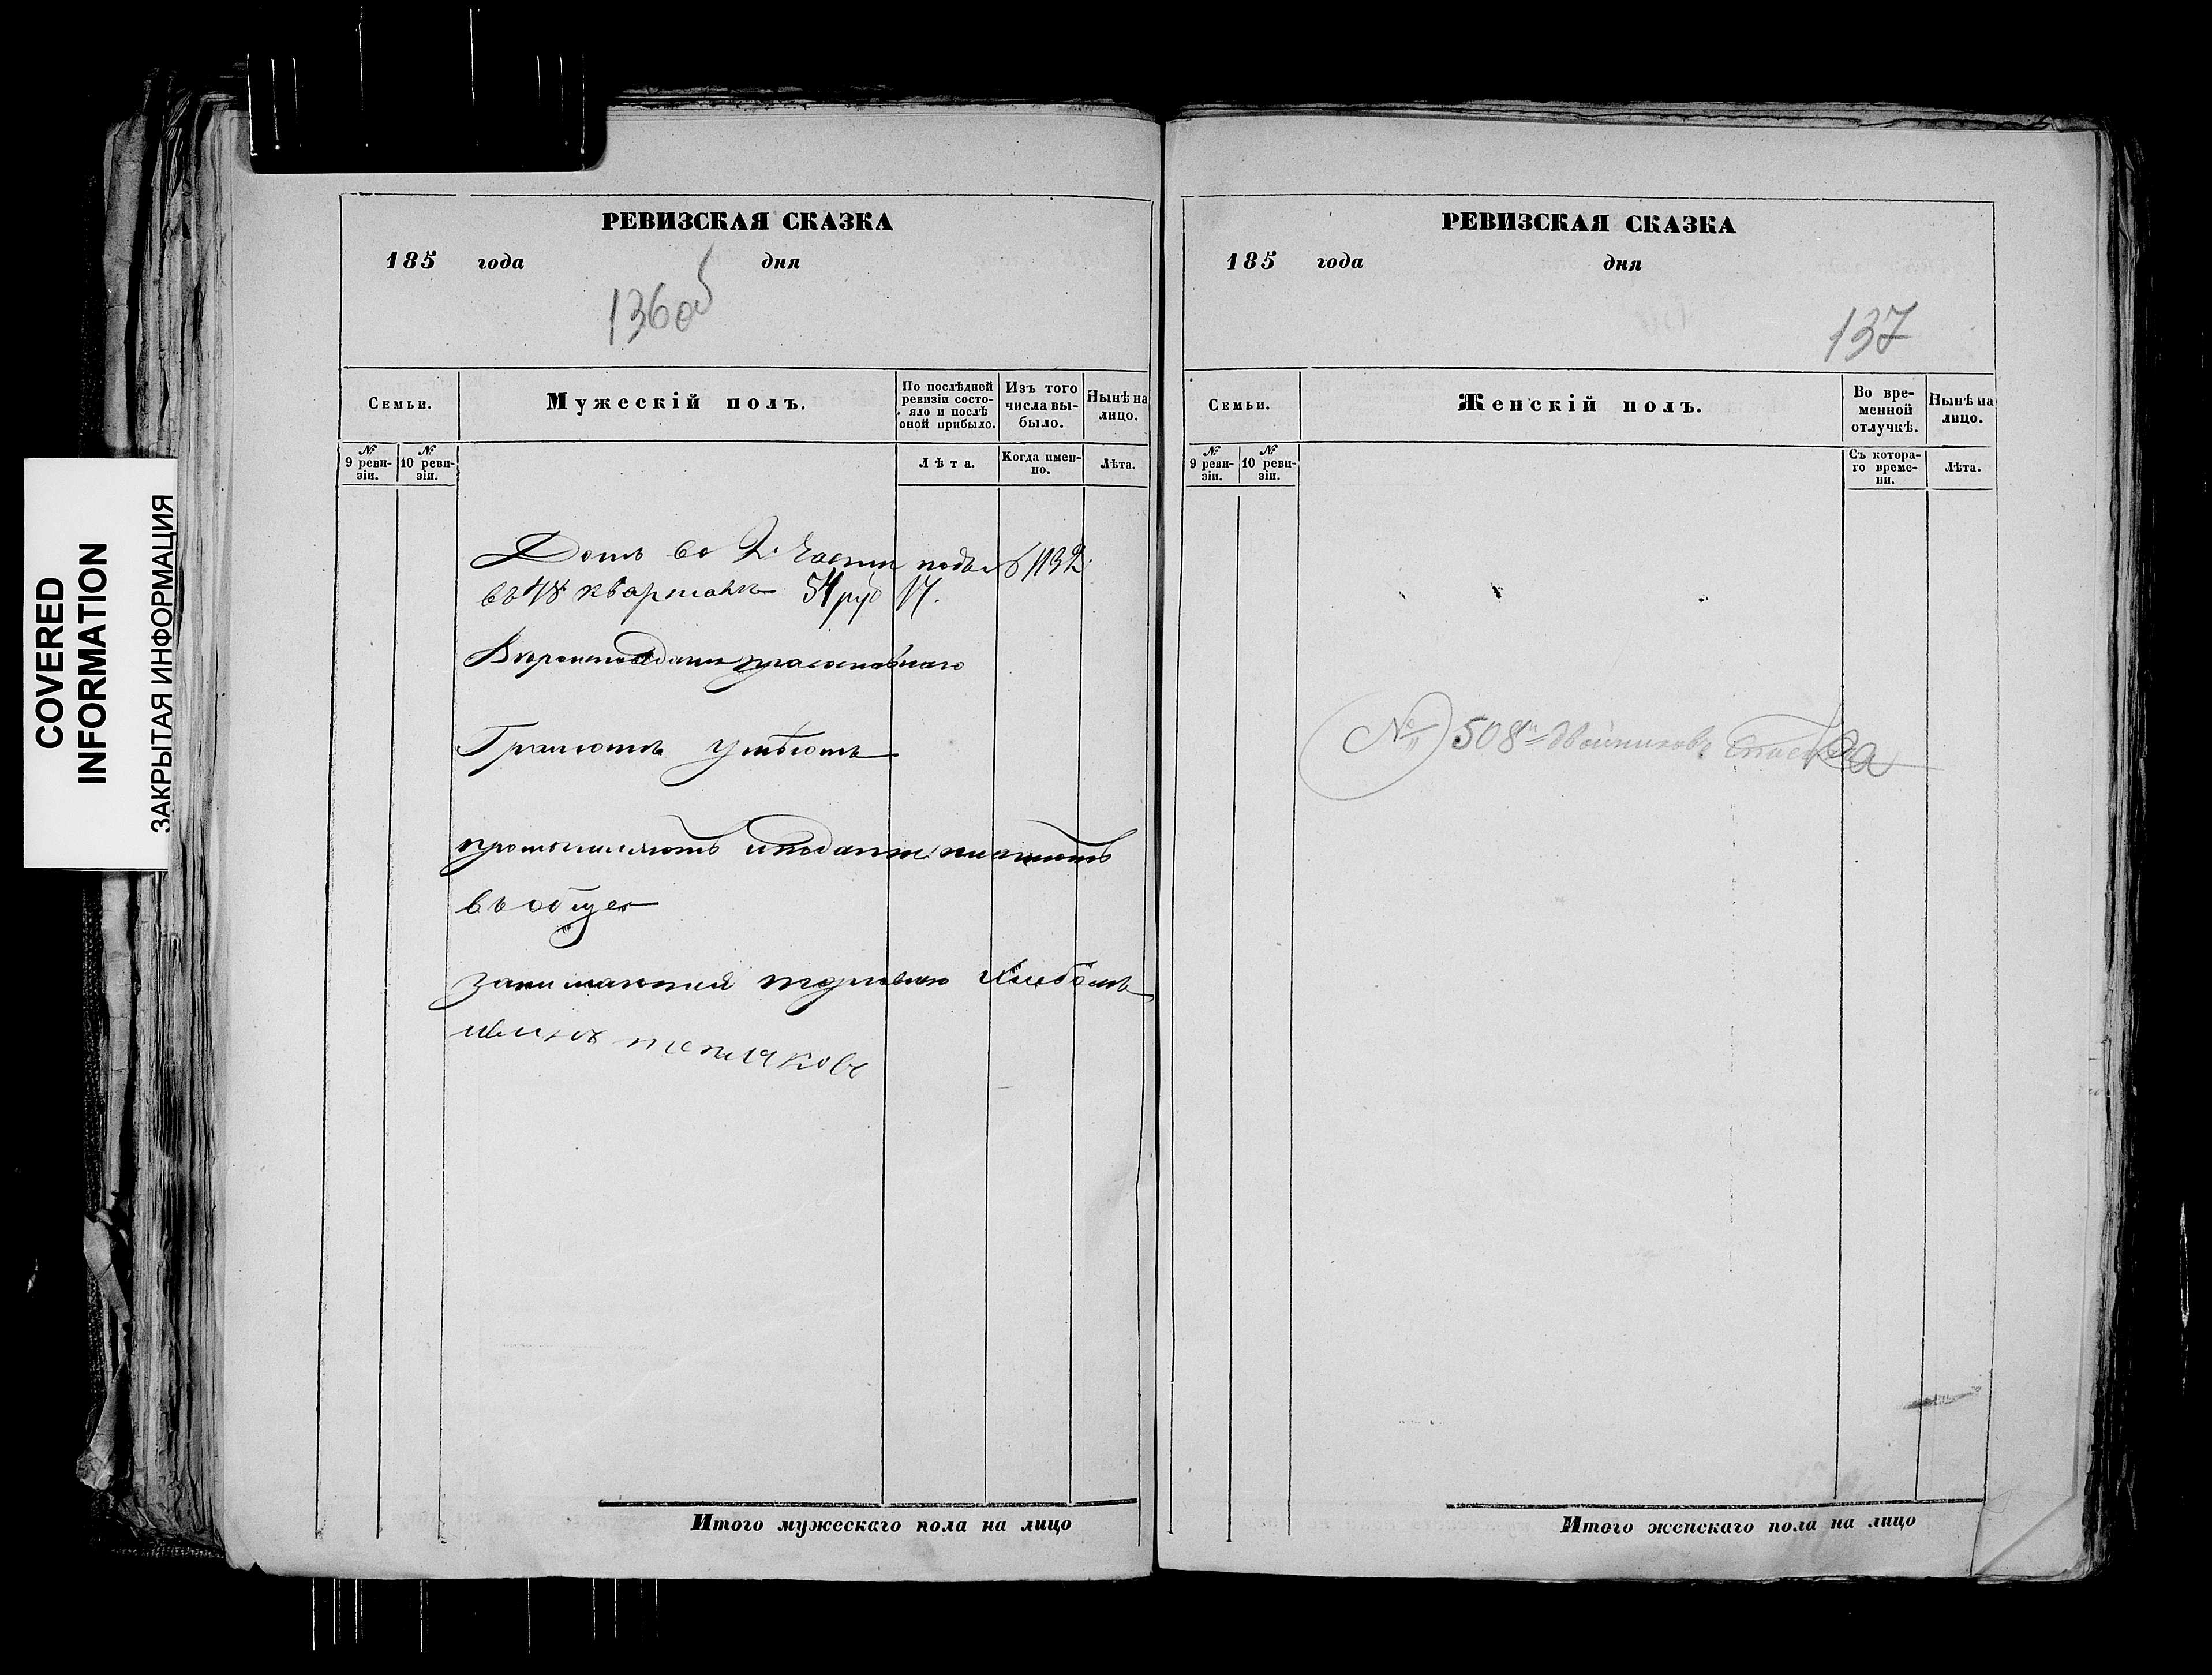 COVERED
INFORMATION
ЗАКРЫТАЯ ИНФОРМАЦИЯ
РЕВИЗСКАЯ СКАЗКА
185 года дня
136об
Семьи.
Мужескій полъ.
По послѣдней ревизіи состояло и послѣ оной прибыло.
Изъ того числа выбыло.
Нынѣ на лицо.
№ 9 ревизіи.
№ 10 ревизіи.
Лѣта.
Когда именно.
Лѣта.
Домъ во 2. Части подъ № 1132.
въ 48 кварталѣ 54 руб
Вѣроисповеданія православнаго
Грамотѣ умѣютъ
промышляютъ и подати платютъ
въ обще
занимаются торговлею Хлебомъ
РЕВИЗСКАЯ СКАЗКА
185 года дня
137
Семьи.
Женскій полъ.
Во временной отлучкѣ.
Нынѣ на лицо.
№ 9 ревизіи.
№ 10 ревизіи.
Съ котораго времени.
Лѣта.
№ 508 Двойниковъ
Итого мужескаго пола на лицо
Итого женскаго пола на лицо